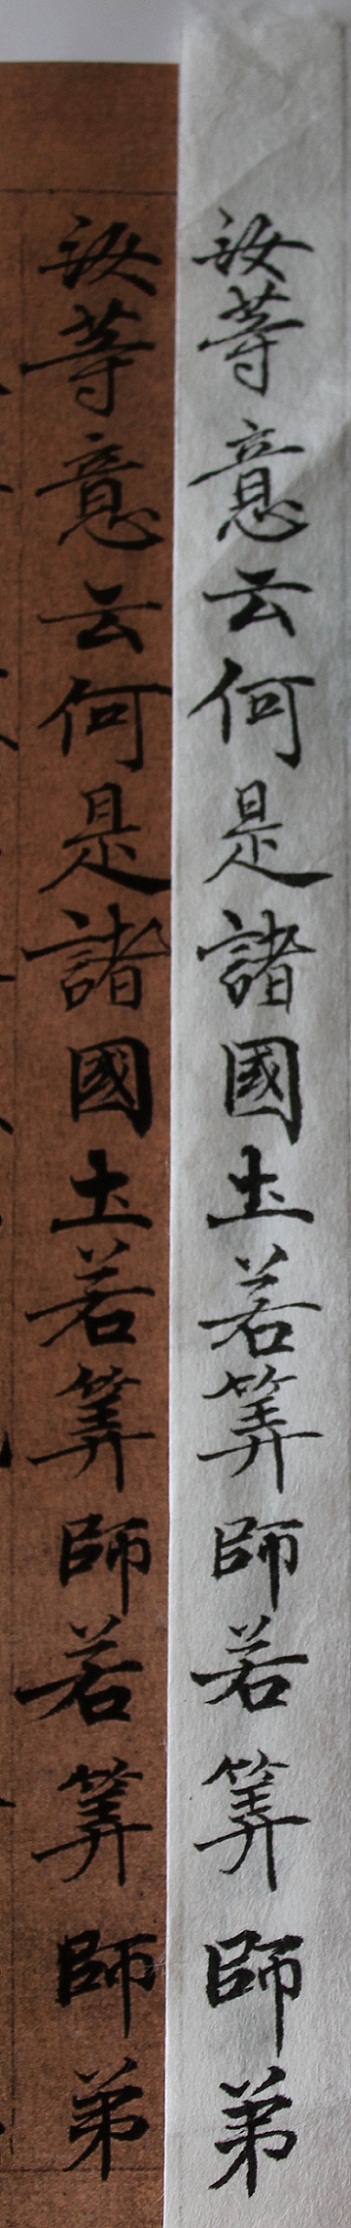 汝等意云何是諸國土若筭師若筭師弟
汝等意云何是諸國土若筭師若筭師弟